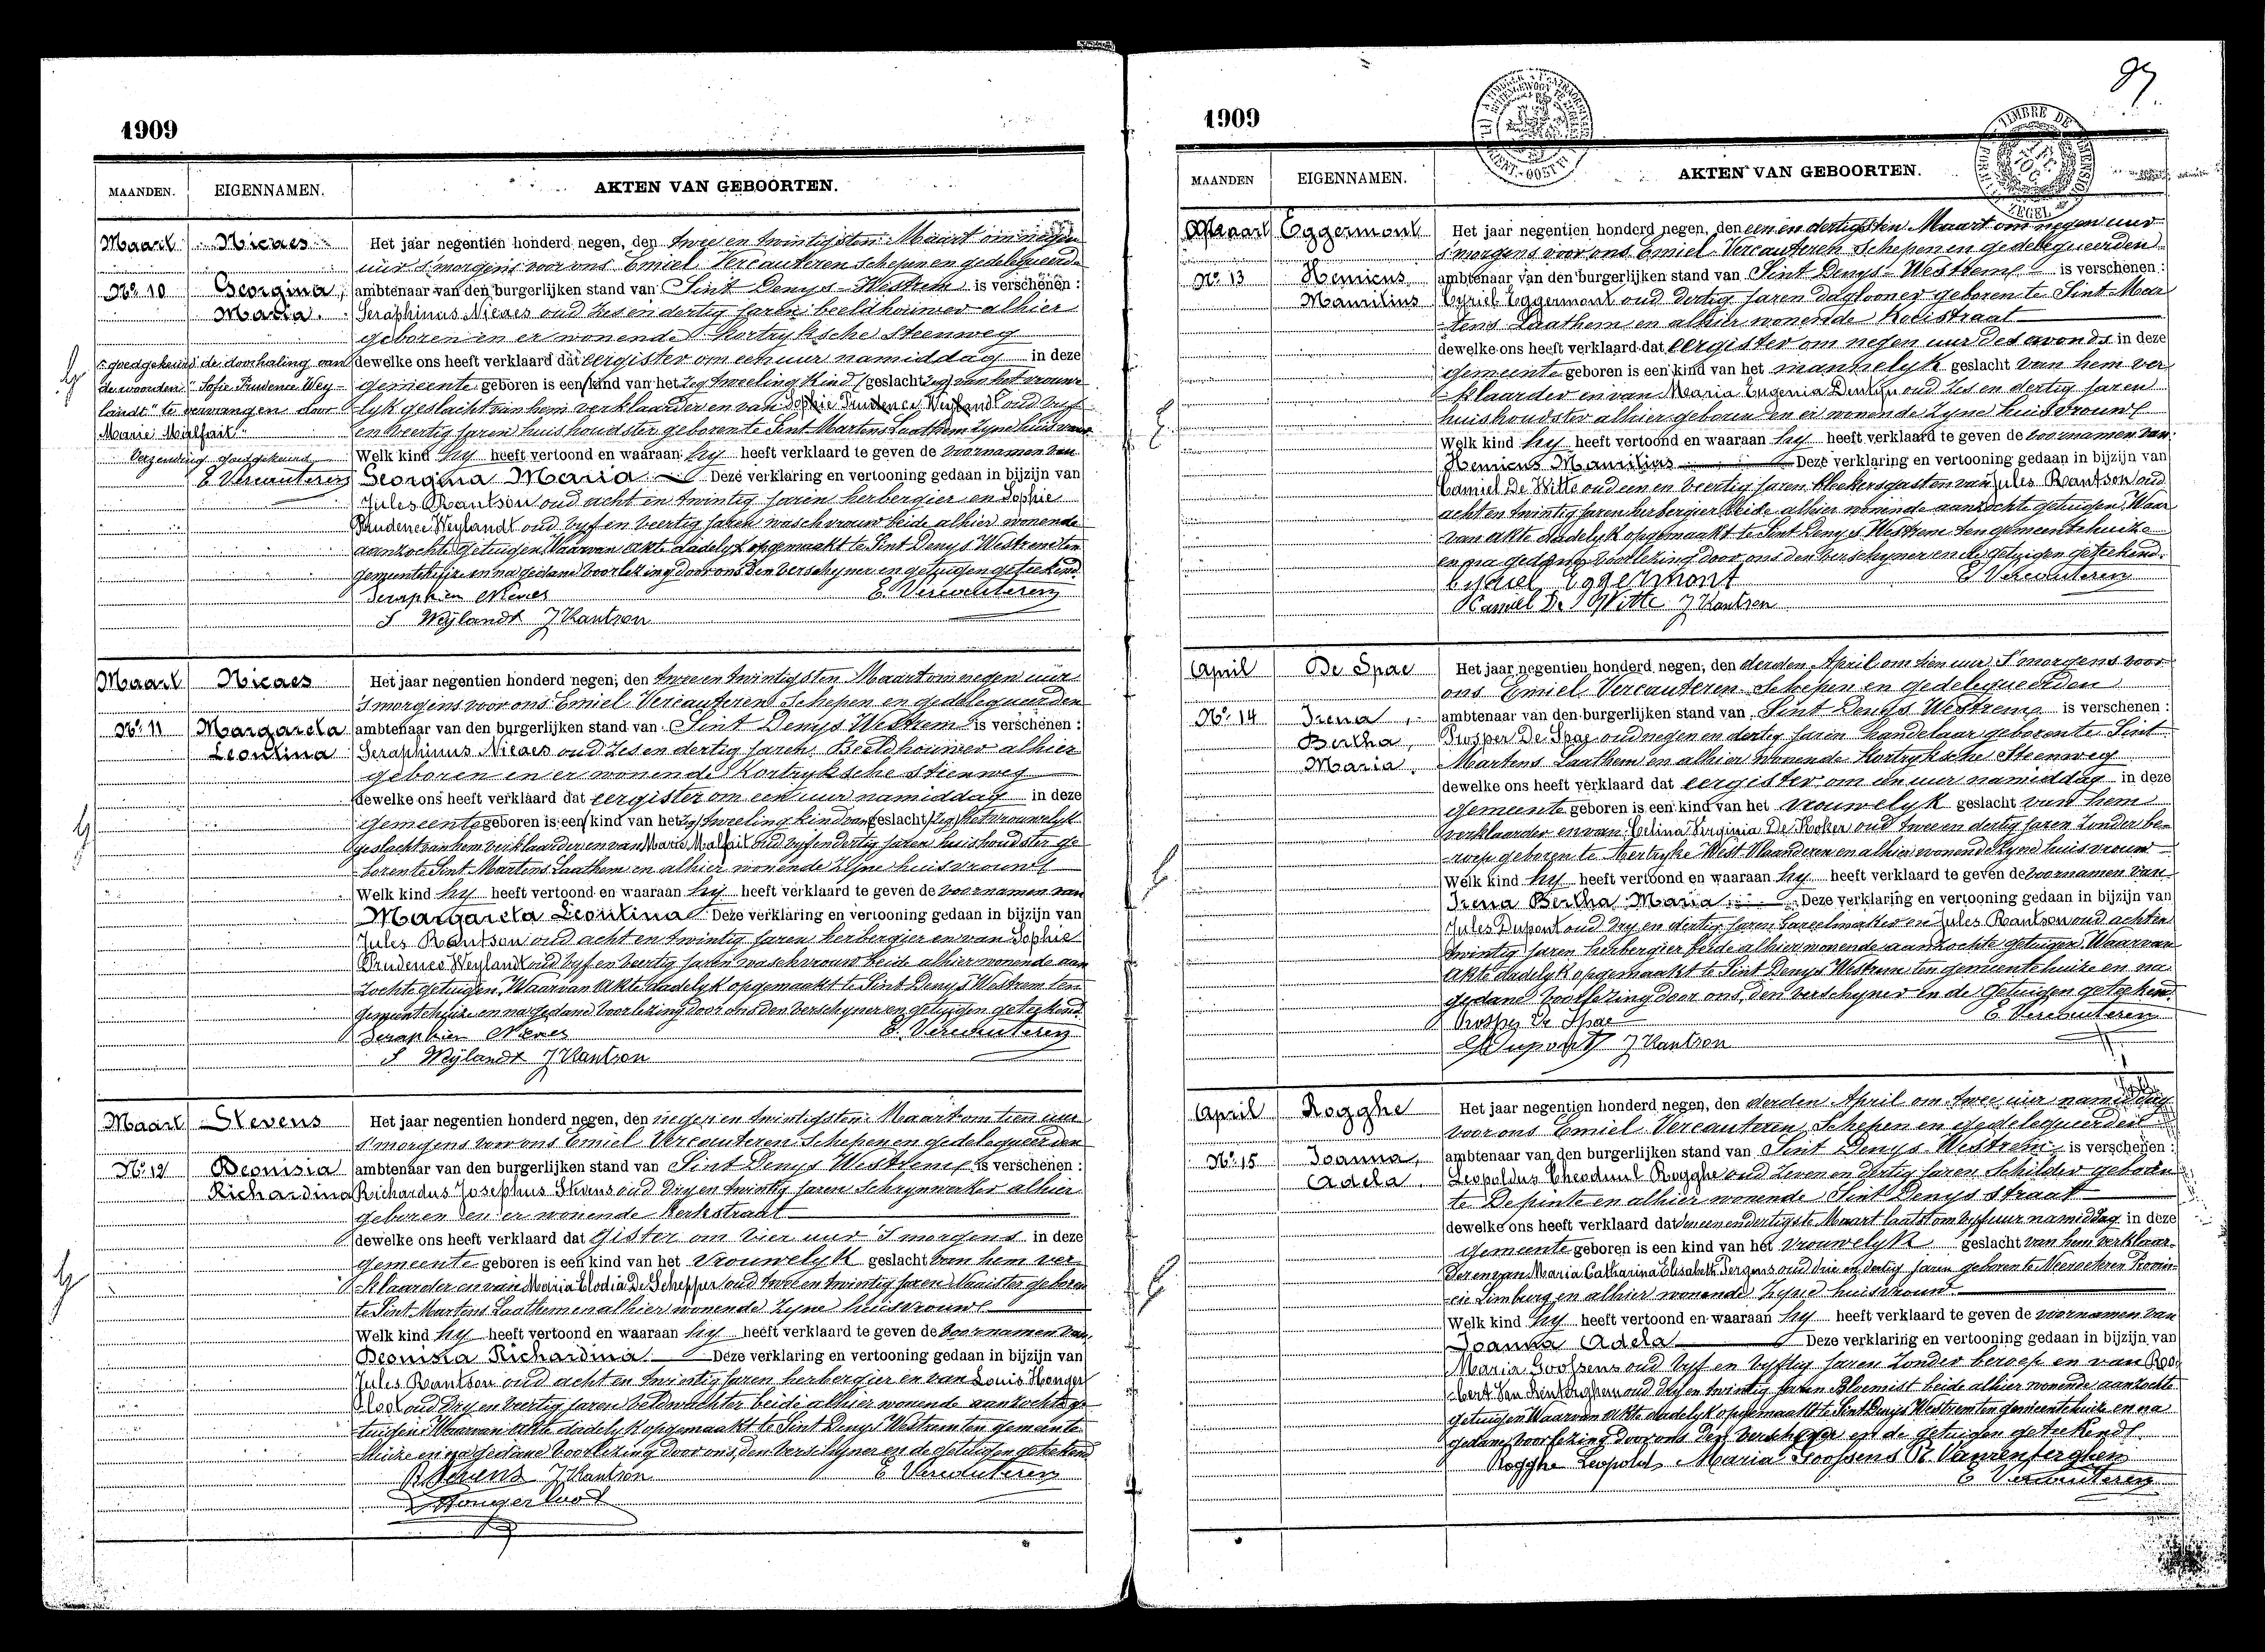 1909
MAANDEN. EIGENNAMEN. AKTEN VAN GEBOORTEN.
Maart Nicaes Het jaar negentien honderd negen, den twee en twintigsten Maart om negen
uur s'morgens voor ons Emiel Vercauteren Schepen en gedelegueerde
No 10 Georgina, ambtenaar van den burgerlijken stand van Sint Denys-Westrem is verschenen :
Maria. Seraphinus Nicaes oud zes en dertig jaren beeldhouwer alhier
geboren en er wonende Kortryksche Steenweg
goedgekeurd de doorhaling van dewelke ons heeft verklaard dat eergister om een uur namiddag in deze
de woorden "Sofie Prudence Wey- gemeente geboren is een kind van het zeg tweeling kind (geslacht zeg) van het vrouwe
landt" te vervangen door lyk geslacht van hem verklaarder en van Sophie Prudence Weylandt oud vyf
Marie Malfait." en veertig jaren huishoudster geboren te Sint-Martens Laathem zyne huisvrouw
Verzending goedgekeurd Welk kind hy heeft vertoond en waaraan hy heeft verklaard te geven de voornamen van
E Vercauteren Georgina Maria Deze verklaring en vertooning gedaan in bijzijn van
Jules Rantson oud acht en twintig jaren herbergier en Sophie
Prudence Weylandt oud vyf en veertig jaren waschvrouw beide alhier wonende
aanzochte getuigen Waarvan akte dadelyk opgemaakt te Sint Denys Westrem ten
gemeentehuize en na gedane voorlezing door ons den verschyner en getuigen geteekend.
Seraphien Nicaes E. Vercauteren
S Weylandt J Rantson
Maart Nicaes Het jaar negentien honderd negen, den twee en twintigsten Maart om negen uur
s'morgens voor ons Emiel Vercauteren Schepen en gedelegueerden
No 11 Margareta ambtenaar van den burgerlijken stand van Sint Denys Westrem is verschenen :
Leontina Seraphinus Nicaes oud zes en dertig jaren Beeldhouwer alhier
geboren en er wonende Kortryksche steenweg
dewelke ons heeft verklaard dat eergister om een uur namiddag in deze
gemeente geboren is een kind van het zeg tweeling kind van geslacht zeg het vrouwelyk
geslacht van hem verklaarder en van Marie Malfait oud vyf en dertig jaren huishoudster ge-
boren te Sint Martens Laathem en alhier wonende zyne huisvrouwe
Welk kind hy heeft vertoond en waaraan hy heeft verklaard te geven de voornamen van
Margareta Leontina Deze verklaring en vertooning gedaan in bijzijn van
Jules Rantson oud acht en twintig jaren herbergier en van Sophie
Prudence Weylandt oud vyf en veertig jaren waschvrouw beide alhier wonende aan
zochte getuigen, Waarvan akte dadelyk opgemaakt te Sint Denys Westrem ten
gemeentehuize en na gedane voorlezing door ons den verschyner en getuigen geteekend.
Seraphien Nicaes E. Vercauteren
S Weylandt J Rantson
Maart Stevens Het jaar negentien honderd negen, den negen en twintigsten Maart om tien uur
s'morgens voor ons Emiel Vercauteren Schepen en gedelegueerden
No 12 Deonisia ambtenaar van den burgerlijken stand van Sint Denys Westrem is verschenen :
Richardina Richardus Josephus Stevens oud dry en twintig jaren Schrynwerker alhier
geboren en er wonende Kerkstraat
dewelke ons heeft verklaard dat Gister om vier uur s'morgens in deze
gemeente geboren is een kind van het vrouwelyk geslacht van hem ver-
klaarder en van Maria Elodia De Schepper oud twee en twintig jaren Naaister geboren
te Sint Martens Laathem en alhier wonende zyne huisvrouwe
Welk kind hy heeft vertoond en waaraan hy heeft verklaard te geven de voornamen van
Deonisia Richardina Deze verklaring en vertooning gedaan in bijzijn van
Jules Rantson oud acht en twintig jaren herbergier en van Louis Honger
Cloot oud dry en veertig jaren veldwachter beide alhier wonende aanzochte ge-
tuigen Waarvan akte dadelyk opgemaakt te Sint Denys Westrem ten gemeente
huize en na gedane voorlezing door ons, den verschyner en de getuigen geteekend
R Stevens J Rantson E Vercauteren
1909
MAANDEN EIGENNAMEN. AKTEN VAN GEBOORTEN.
Maart Eggermont Het jaar negentien honderd negen, den een en dertigsten Maart om negen uur
s'morgens voor ons Emiel Vercauteren Schepen en gedelegueerden
No 13 Henricus ambtenaar van den burgerlijken stand van Sint Denys-Westrem is verschenen :
Maurilius Cyriel Eggermont oud dertig jaren daglooner geboren te Sint Mar
tens Laathem en alhier wonende Kouistraat
dewelke ons heeft verklaard dat eergister om negen uur des avonds in deze
gemeente geboren is een kind van het mannelyk geslacht van hem ver
klaarder en van Maria Eugenia oud zes en dertig jaren
huishoudster alhier geboren en er wonende zyne huisvrouwe
Welk kind hy heeft vertoond en waaraan hy heeft verklaard te geven de voornamen van
Henricus Maurilius Deze verklaring en vertooning gedaan in bijzijn van
Camiel De Witte oud een en veertig jaren en van Jules Rantson oud
acht en twintig jaren herbergier beide alhier wonende aanzochte getuigen, Waar
van akte dadelyk opgemaakt te Sint Denys Westrem ten gemeentehuize
en na gedane voorlezing door ons den verschyner en de getuigen geteekend.
Cyriel Eggermont E Vercauteren
Kamiel De Witte J Rantson
April De Spae Het jaar negentien honderd negen, den derden April om tien uur s'morgens voor
ons Emiel Vercauteren Schepen en gedelegueerden
No 14 Irena, ambtenaar van den burgerlijken stand van Sint Denys Westrem is verschenen :
Bertha, Prosper De Spae oud negen en dertig jaren handelaar geboren te Sint
Maria. Martens Laathem en alhier wonende Kortryksche Steenweg
dewelke ons heeft verklaard dat eergister om een uur namiddag in deze
gemeente geboren is een kind van het vrouwelyk geslacht van hem
verklaarder en van Celina Virginia De Koker oud twee en dertig jaren zonder be-
roep geboren te Aertryke West Vlaanderen en alhier wonende zyne huisvrouw
Welk kind hy heeft vertoond en waaraan hy heeft verklaard te geven de voornamen van
Irena Bertha Maria Deze verklaring en vertooning gedaan in bijzijn van
Jules Dupont oud dry en dertig jaren Gareelmaker en Jules Rantson oud acht en
twintig jaren herbergier beide alhier wonende aanzochte getuigen, Waarvan
akte dadelyk opgemaakt te Sint Denys Westrem ten gemeentehuize en na
gedane voorlezing door ons, den verschyner en de getuigen geteekend.
Prosper De Spae E Vercauteren
Dupont J Rantson
April Rogghe Het jaar negentien honderd negen, den derden April om twee uur namiddag
voor ons Emiel Vercauteren Schepen en gedelegueerden
No 15 Joanna, ambtenaar van den burgerlijken stand van Sint Denys Westrem is verschenen :
Adela. Leopoldus Rogghe oud zeven en dertig jaren Schilder geboren
te Depinte en alhier wonende Sint Denys straat
dewelke ons heeft verklaard dat den eenendertigste Maart laatst om vyf uur namiddag in deze
Gemeente geboren is een kind van het vrouwelyk geslacht van hem verklaar-
der en van Maria Catharina Elisabeth Tergens oud drie en dertig jaren geboren te Neeroeteren Provin-
cie Limburg en alhier wonende zyne huisvrouw
Welk kind hy heeft vertoond en waaraan hy heeft verklaard te geven de voornamen van
Joanna Adela Deze verklaring en vertooning gedaan in bijzijn van
Maria Goossens oud vyf en vyftig jaren zonder beroep en van Ro-
bert Van Renterghem oud dry en twintig jaren Bloemist beide alhier wonende aanzochte
getuigen Waarvan akte dadelyk opgemaakt te Sint Denys Westrem ten gemeentehuize en na
gedane voorlezing door ons den verschyner en de getuigen geteekend.
Rogghe Leopold Maria Goossens R. Vanrenterghem
E Vercauteren